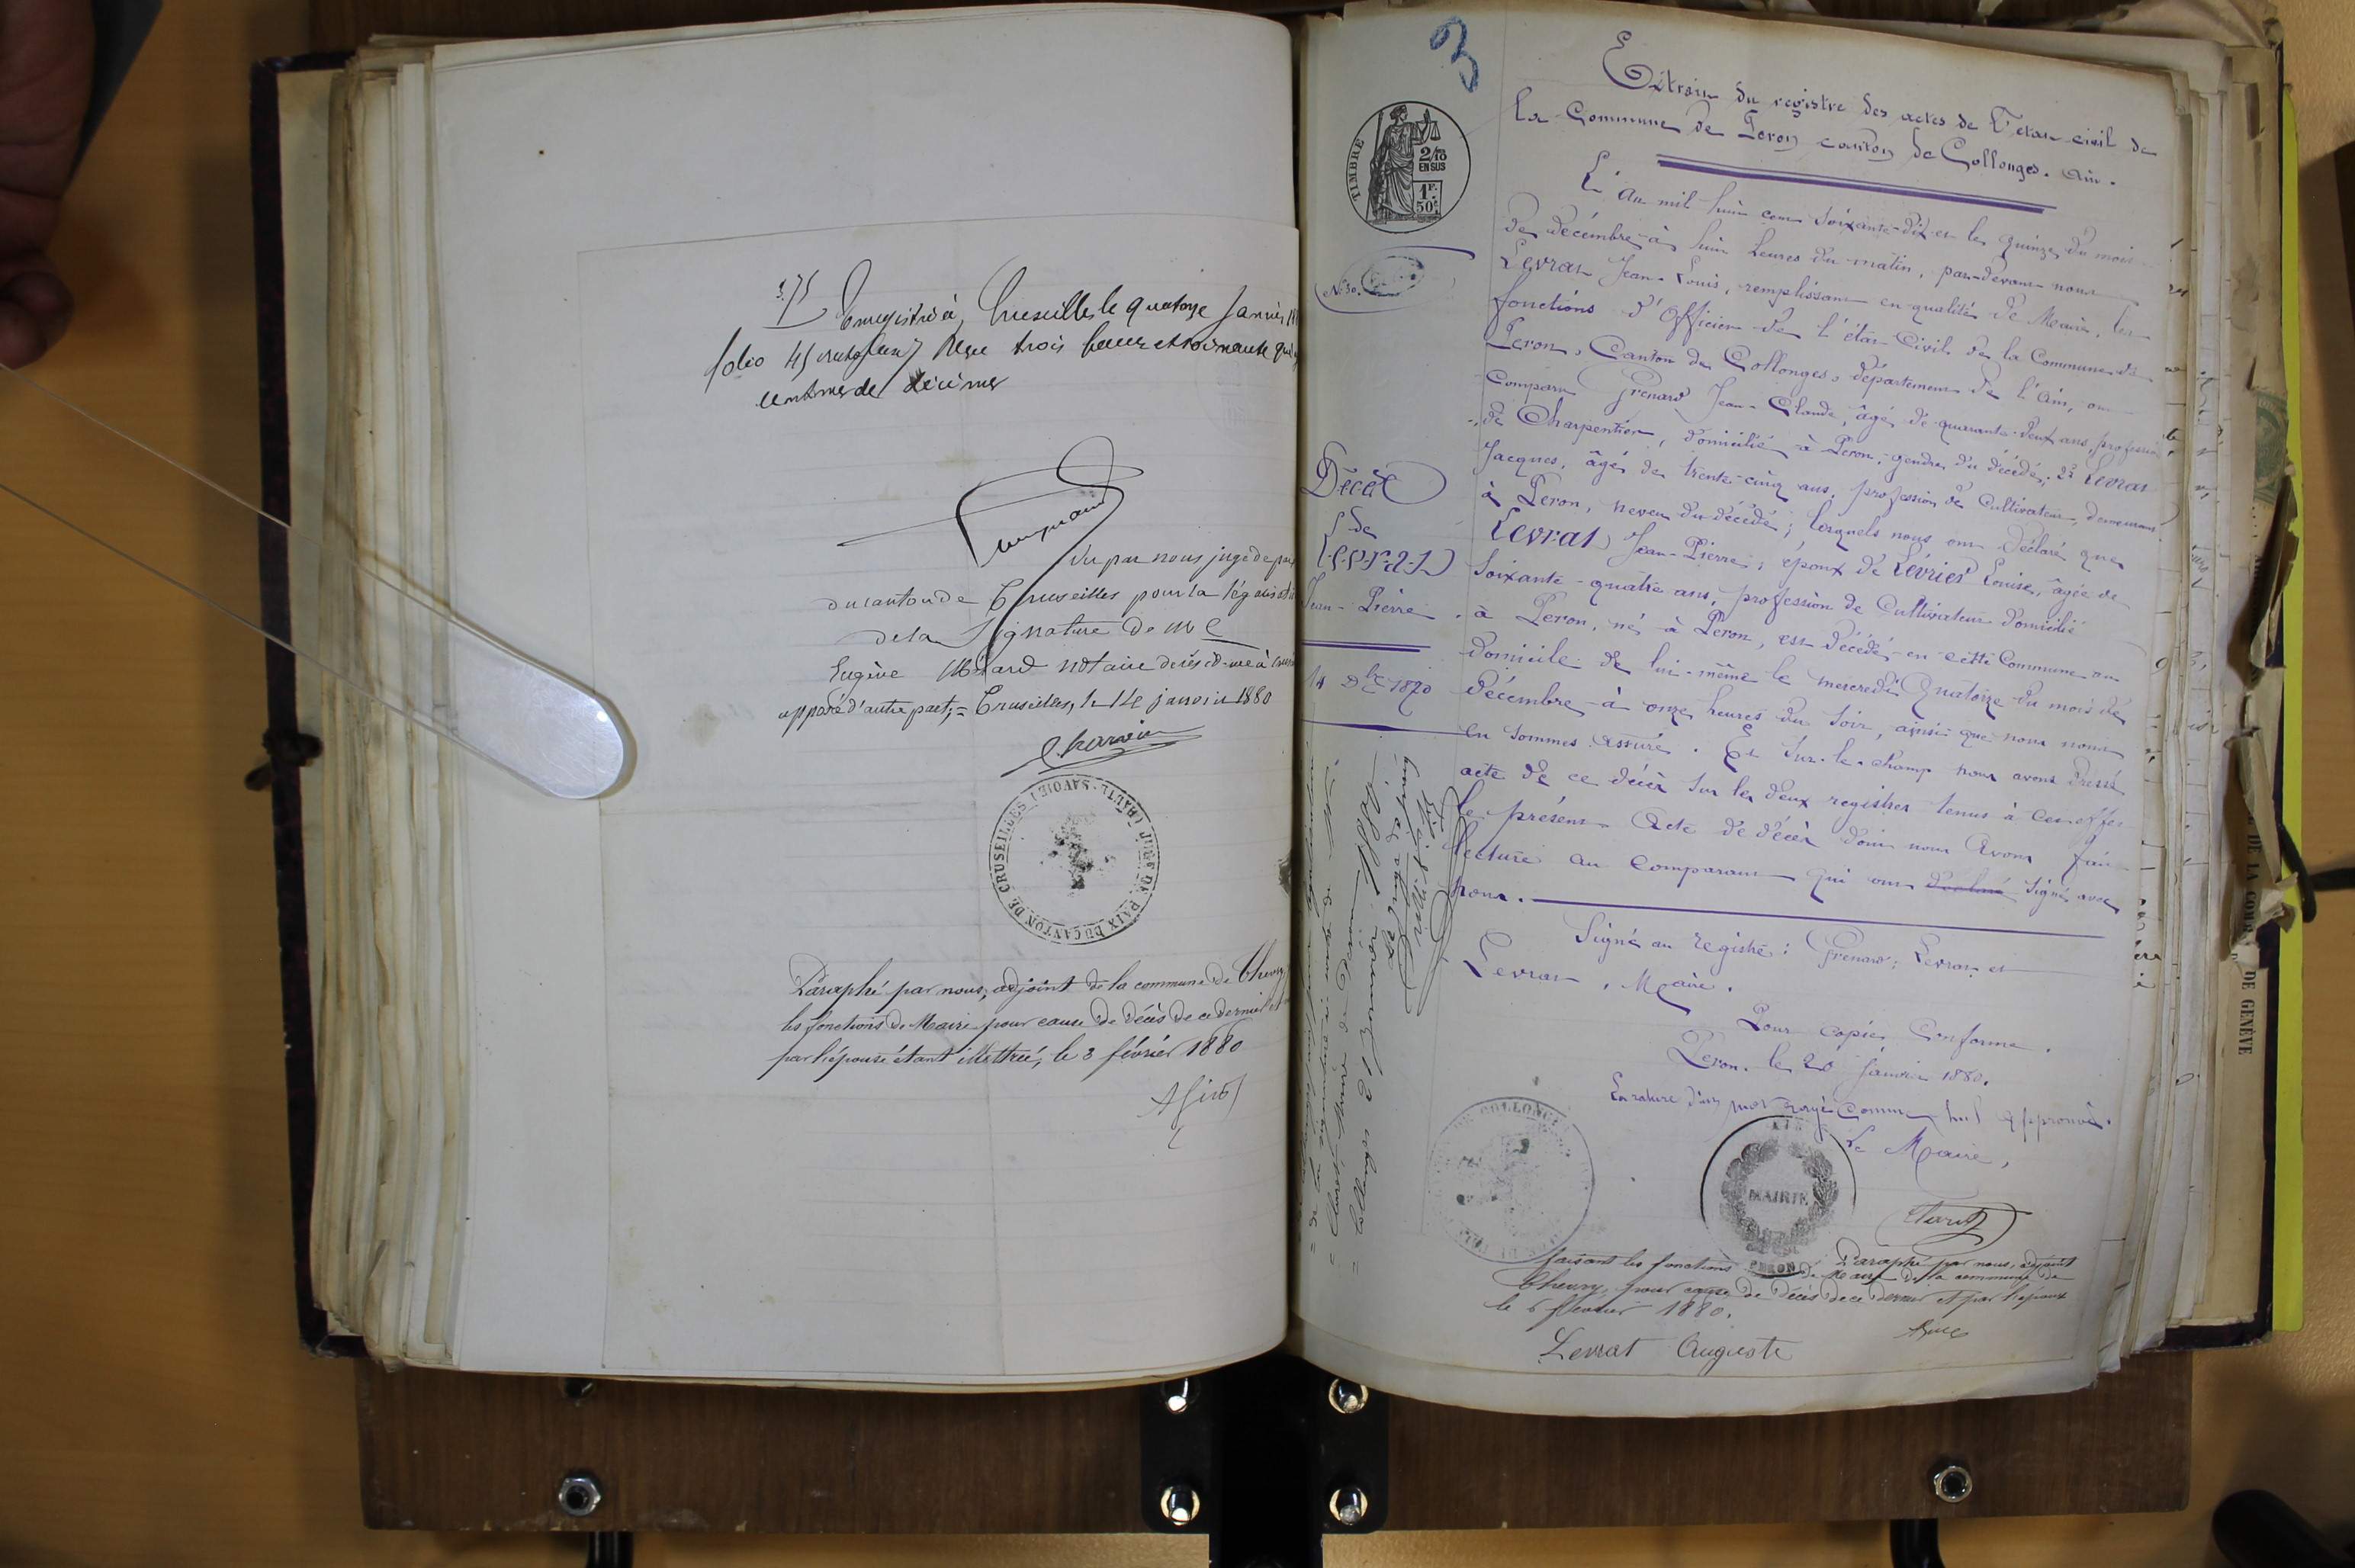 3.75
Enregistré à Cruseilles le quatorze Janvier
folio 45 Reçu trois francs soixante quinze
centimes décimes
Vu par nous juge de paix
du canton de Cruseilles pour la légalisation
de la Signature de Me
Eugène notaire de résidence à
apposé d'autre part, = Cruseilles, le 14 janvier 1880
JUGE DE PAIX DU CANTON DE CRUSEILLES (HAUTE-SAVOIE)
Paraphé par nous, adjoint de la commune de Thoiry
les fonctions de Maire pour cause de décès de ce dernier et
par l'épouse étant illettrée, le 3 février 1880
3
TIMBRE
2/10
EN SUS
1F.
50c.
Extrait du registre des actes de l'état-civil de
la Commune de Peron canton de Collonges. Ain.
L'an mil huit cent soixante-dix et le quinze du mois
de décembre à huit heures du matin, par-devant nous
Levrat Jean-Louis, remplissant en qualité de Maire, les
fonctions d'Officier de l'état-Civil de la Commune de
Peron, Canton de Collonges, département de l'Ain, ont
comparu Grenard Jean-Claude, âgé de quarante-deux ans, profession
de Charpentier, domicilié à Peron, gendre du décédé, 2° Levrat
Jacques, âgé de trente-cinq ans, profession de Cultivateur, demeurant
à Peron, neveu du décédé; lesquels nous ont déclaré que
Levrat Jean-Pierre, époux de Lévrier Louise, âgée de
soixante-quatre ans, profession de Cultivateur domicilié
à Peron, né à Peron, est décédé en cette Commune au
domicile de lui-même le mercredi Quatorze du mois de
décembre à onze heures du soir, ainsi que nous nous
en sommes assuré. Et sur-le-champ nous avons dressé
acte de ce décès sur les deux registres tenus à cet effet
le présent Acte de décès dont nous Avons fait
lecture au Comparant qui ont déclaré signé avec
nous.
Signé au registre: Grenard, Levrat et
Levrat, Maire.
Pour copie Conforme.
Peron le 20 Janvier 1880.
La rature d'un mot rayé comme nul approuvé.
Le Maire,
N° 30.
Décès
de
Levrat
Jean-Pierre
14 Xbre 1870
MAIRIE
PERON
AIN
Paraphé par nous, adjoint
faisant les fonctions de Maire de la commune de
Thoiry, pour cause de décès de ce dernier et par l'époux
le 6 février 1880.
Levrat Auguste
DE GENÈVE